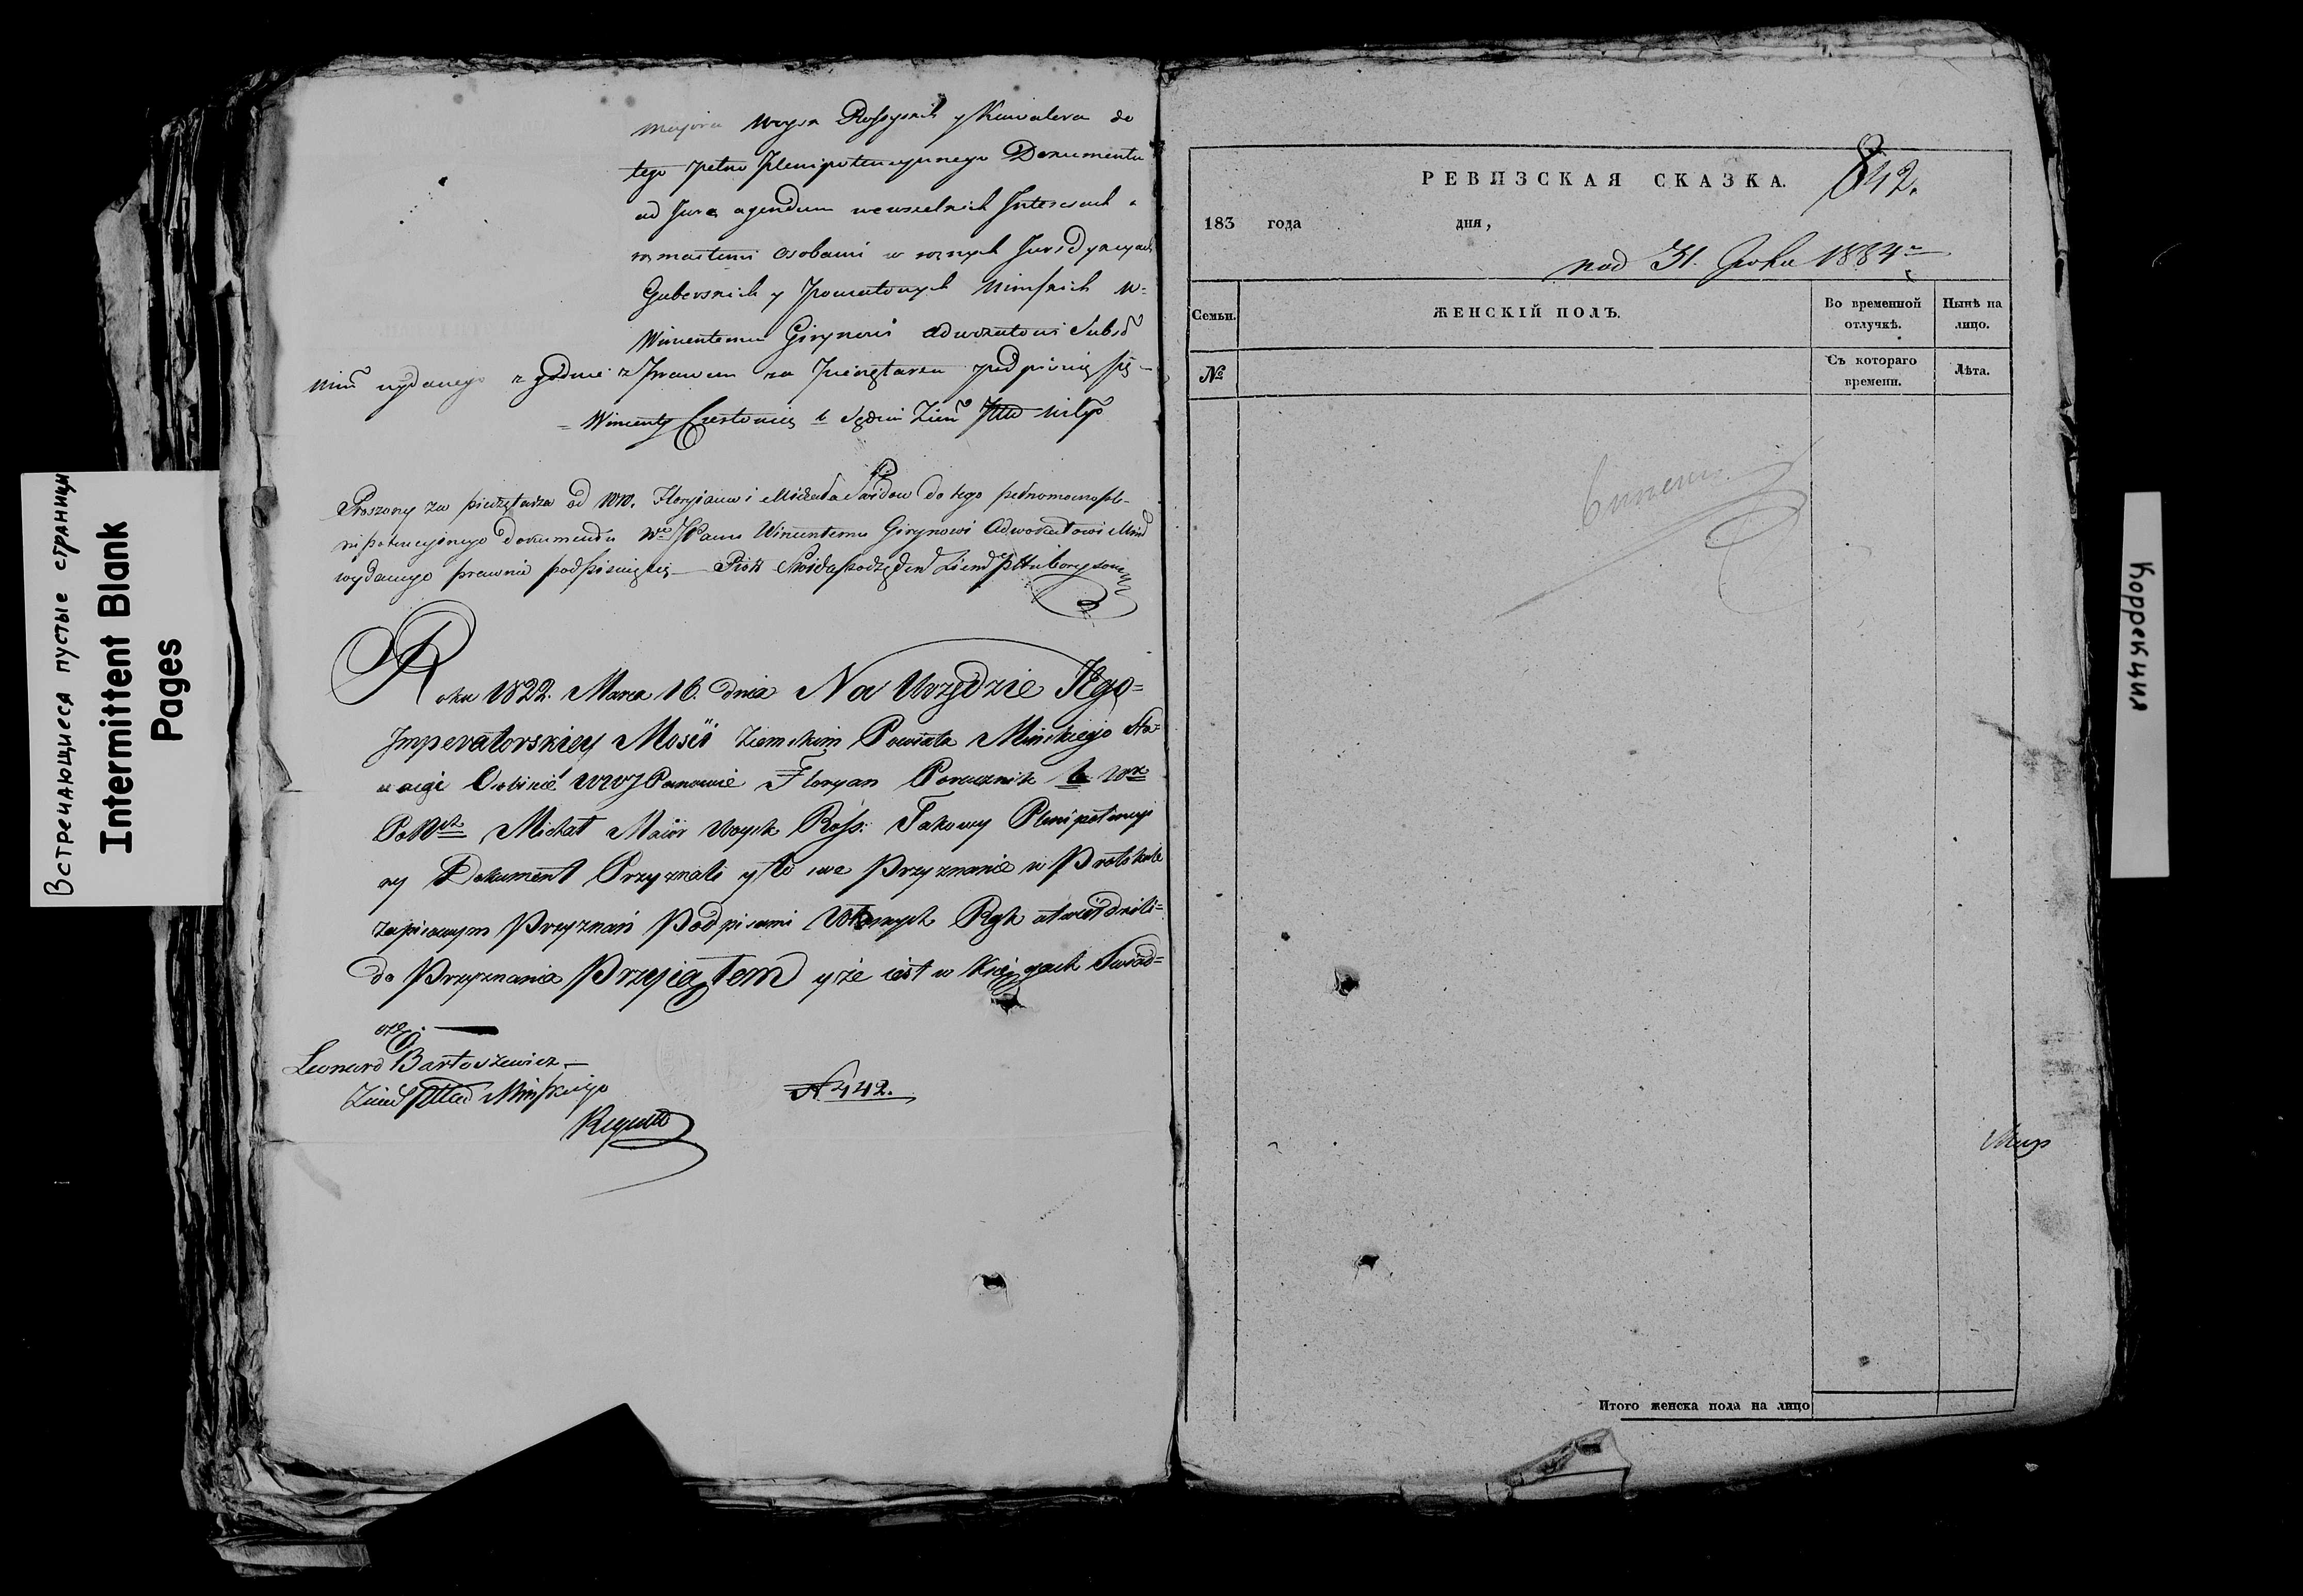 Встречающиеся пустые страницы
Intermittent Blank
Pages
Majora Woysk Rossyskich y Kawalera do
tego pełno plenipotencyjnego Dokumentu
ad Jura agendum we wszelkich Interesach z
rozmaitemi osobami w roznych Jurisdykcyach
Gubersnich y Powiatowych Minskich W=
Wincentemu Girynowi Adwokatowi Subsd
Min wydanego zgodnie z Prawem za Pieczętarza podpisuię się
= Wincenty b Sędzia Ziem Pttu
Proszony za pieczętarza od WW. Floryana i Michała Swidow do tego pełnomocno ple-
nipotencyjnego dokumentu W JPanu Wincentemu Girynowi Adwokatowi Mind
wydanego prawnie podpisuię się — Piotr Ziem
Roku 1822. Marca 16. dnia Na Urzędzie Jego=
Imperatorskiey Mosci Ziemskim Powiatu Minskiego Sta=
waiąc Osobiscie WWJPanowie Floryan Porucznik b Wk
Pol Michał Maior Woysk Ross: Takowy Plenipotencyi
ny Dokument Przyznali y to swe Przyznanie w Protokule
Zapisowym Przyznań Podpisami Własnych Rąk utwierdzili=
do Przyznania Przyjąłem y że iest w Xięgach Swiad=
czę. —
Leonard Bartoszewicz —
Ziem Pttu Minskiego
Regent
N. 442.
842.
РЕВИЗСКАЯ СКАЗКА.
183 года дня,
pod 31. 1834
Семьи. ЖЕНСКІЙ ПОЛЪ. Во временной отлучкѣ. Нынѣ на лицо.
№ Съ котораго времени. Лѣта.
Итого женска пола на лицо
Коррекция